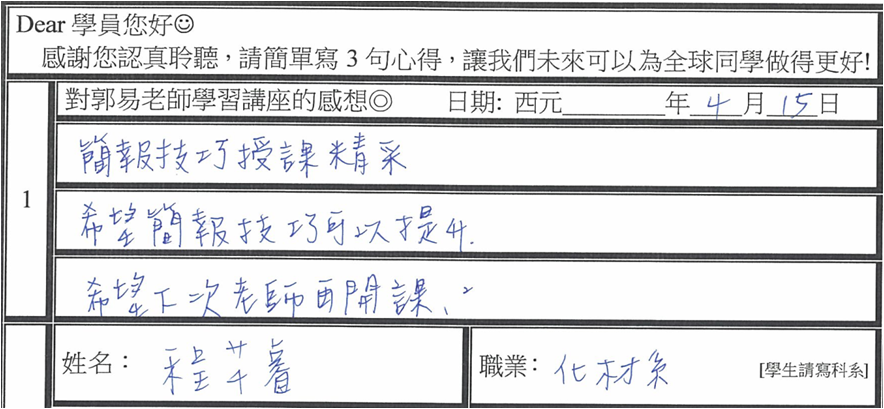 Dear 學員您好☺
感謝您認真聆聽，請簡單寫 3 句心得，讓我們未來可以為全球同學做得更好!
對郭易老師學習講座的感想◎ 日期: 西元________年 4 月 15 日
1
簡報技巧授課精采
希望簡報技巧可以提升.
希望下次老師再開課
姓名： 程芊睿 職業： 化材系 [學生請寫科系]